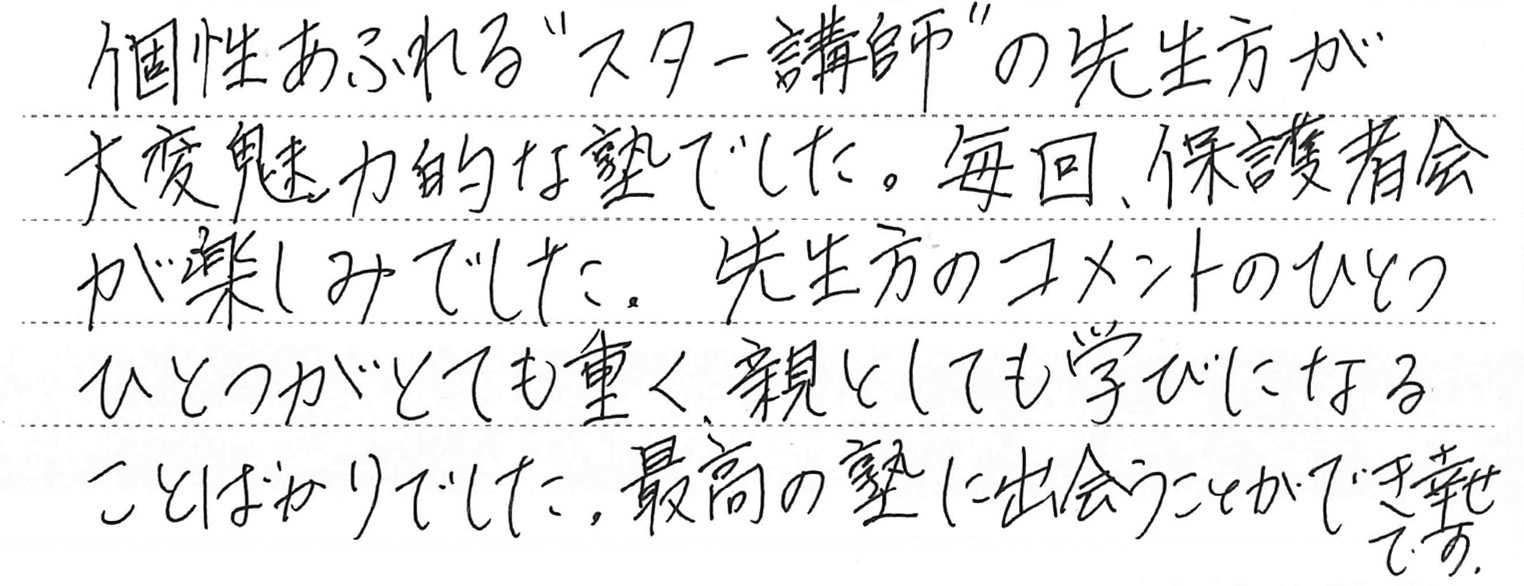 個性あふれる"スター講師"の先生方が
大変魅力的な塾でした。毎回、保護者会
が楽しみでした。先生方のコメントのひとつ
ひとつがとても重く、親としても学びになる
ことばかりでした。最高の塾に出会うことができ幸せ
です。